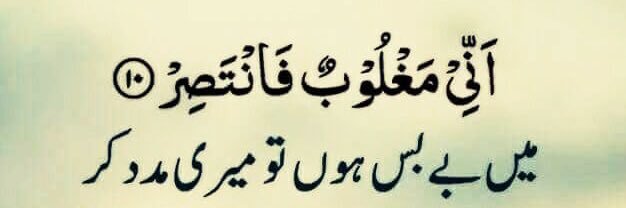 اَنِّیْ مَغْلُوْبٌ فَانْتَصِرْ ۝۱۰
میں بے بس ہوں تو میری مدد کر